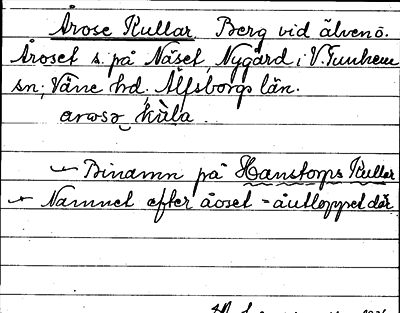 Årose Kullar. Berg vid älven ö.
Åroset s. på Näset, Nygård i V. Tunhem
sn, Väne hd. Älfsborgs län.
arωsə kula.
Binamn på Hanstorps Kullar
Namnet efter åoset = åutloppet där